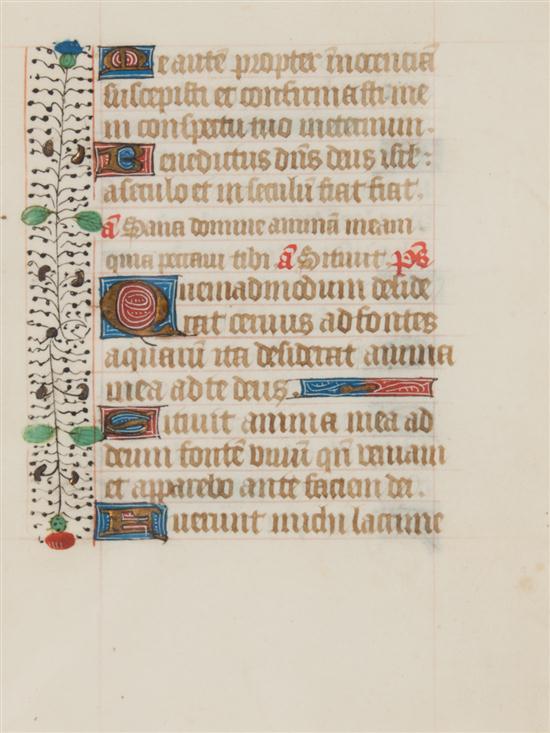 Me autē propter īnocenciā
suscepisti et confirmasti me
in conspectu tuo in eternum.
Benedictus dn̄s deus isrl̄:
a seculo et in seculū fiat fiat.
ā Sana domine animā meam
quia peccavi tibi ā Sitivit ps̄
Quemadmodum deside
rat cervus ad fontes
aquarū ita desiderat anima
mea ad te deus.
Sitivit anima mea ad
deum fontē vivū qn̄ veniam
et apparebo ante faciem dei.
Fuerunt michi lacrime